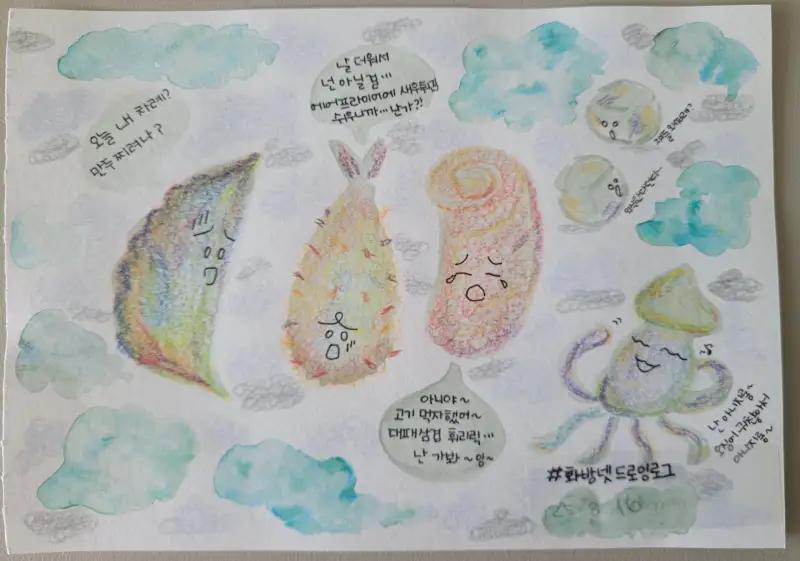 오늘 내 차례?
만두 찌려나?
날 더워서
넌 아닐걸...
에어프라이어에 새우튀김
쉬우니까... 난가?!
아니야~
고기 먹자했어~
대패삼겹 휘리릭...
난 가봐 ~잉~
난 아니지롱~
오징어 귀찮아서
아니지롱~
#화방넷드로잉로그
25 8 16